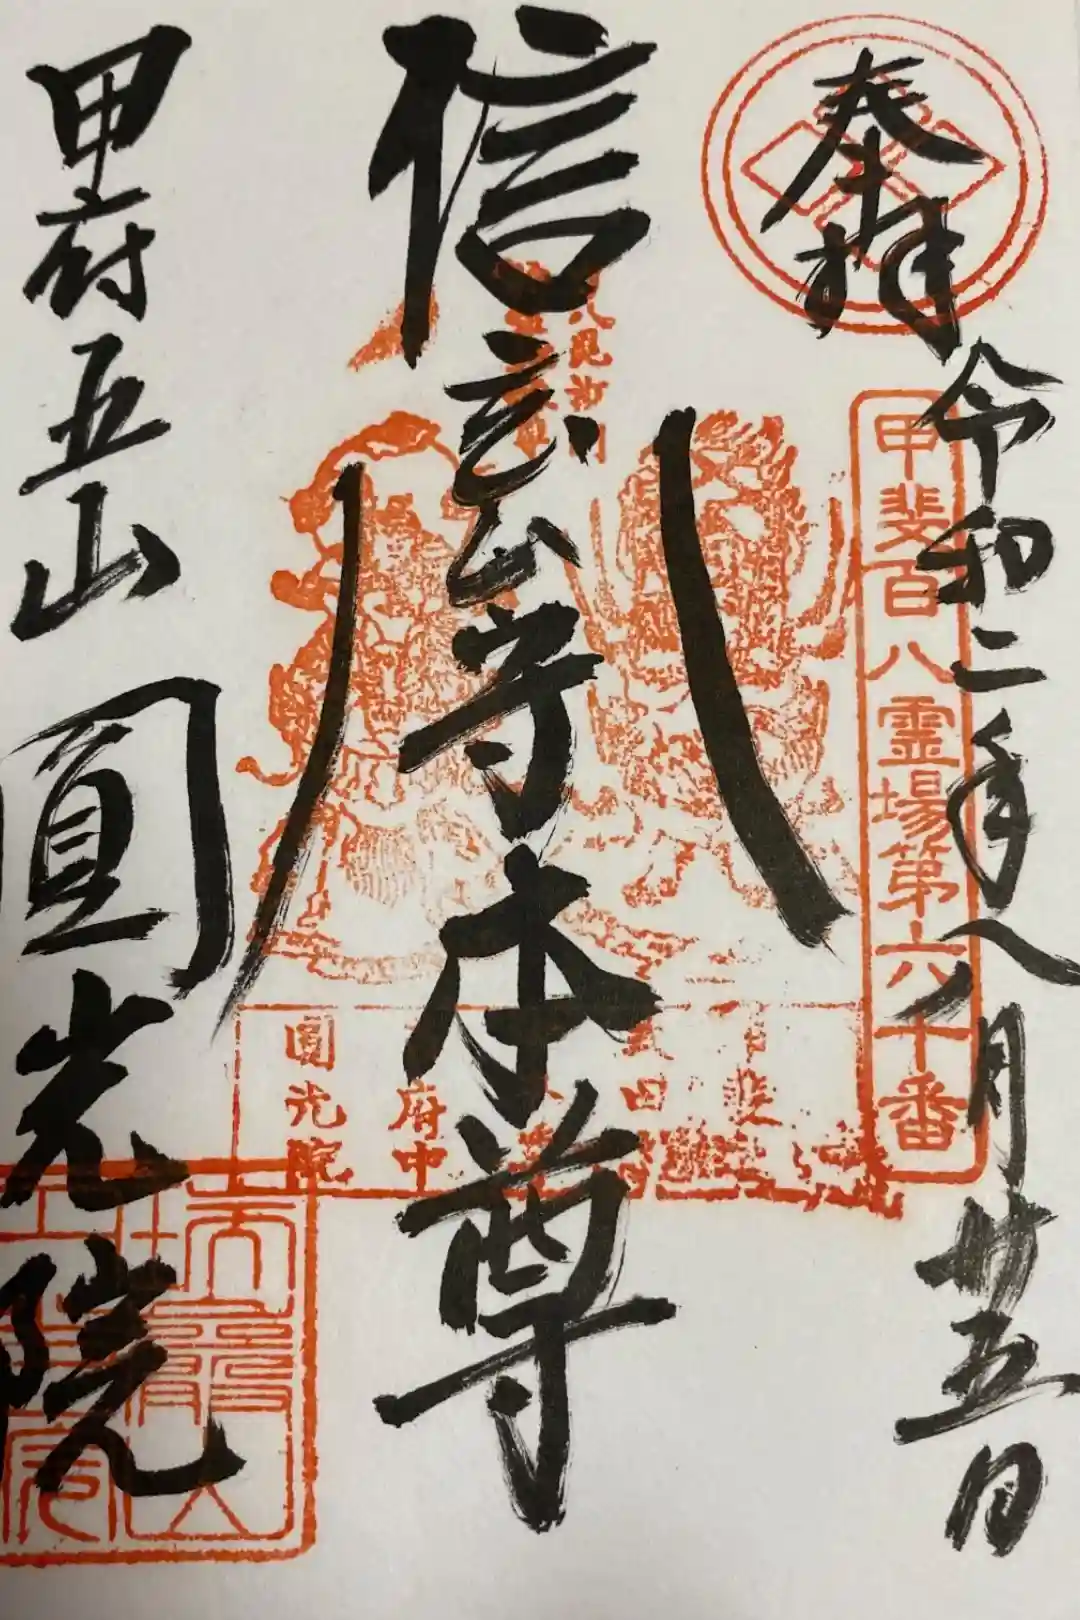 奉拝
令和二年八月廿五日
甲斐百八霊場第六十番
信玄公守本尊
甲府五山
圓光院
府中
圓光院